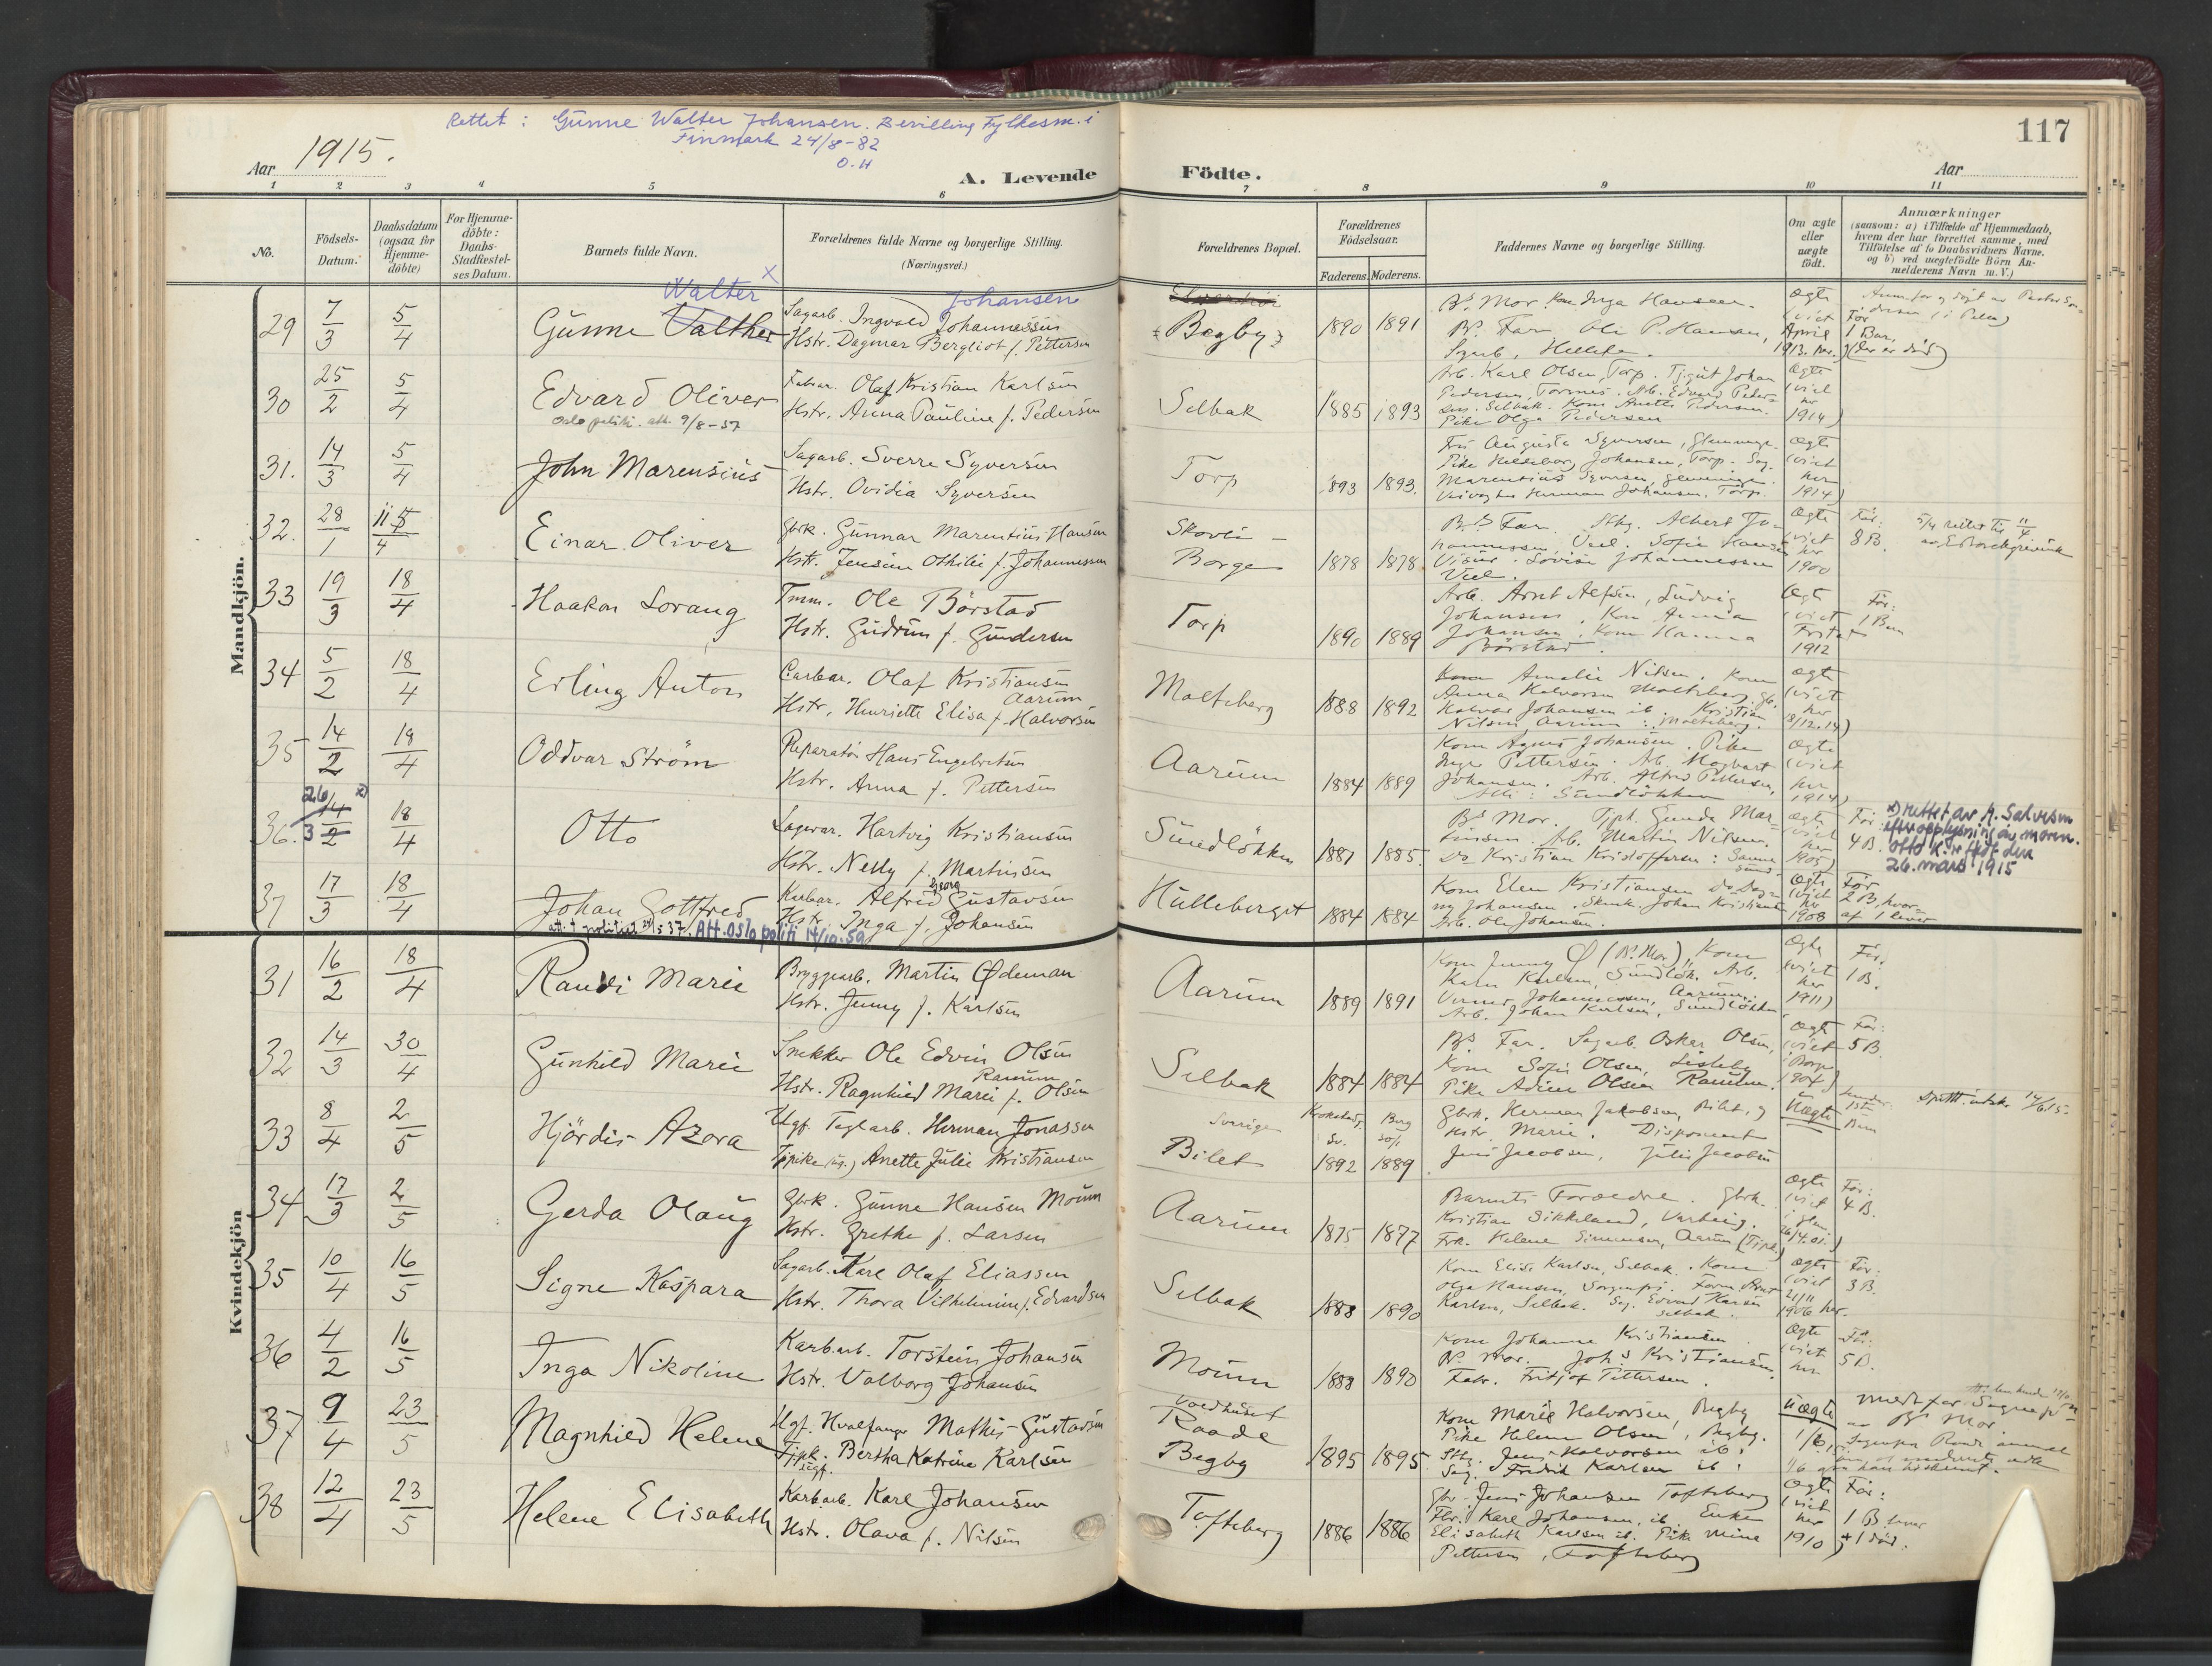 Rettet: Gunne Walter Johansen. Bevilling Fylkesm. i
Finmark 24/8-82
O.H
117
Aar 1915.
A. Levende Födte.
Aar
1 2 3 4 5 6 7 8 9 10 11
No.
Födsels-Datum.
Daabsdatum (ogsaa for Hjemme-döbte)
For Hjemme-döbte: Daabs-Stadfæstel-ses Datum.
Barnets fulde Navn.
Forældrenes fulde Navne og borgerlige Stilling.
(Næringsvei.)
Forældrenes Bopæl.
Forældrenes Födselsaar.
Faderens. Moderens.
Faddernes Navne og borgerlige Stilling.
Om ægte eller uægte födt.
Anmærkninger
(saasom: a) i Tilfælde af Hjemmedaab,
hvem der har forrettet samme, med
Tilföielse af to Daabsvidners Navne.
og b) ved uægtefödte Börn An-
melderens Navn m. V.)
Mandkjön.
Walter x
Johansen
29 7/3 5/4 Gunne Valther
Sagarb. Ingvald Johannessen
Hstr. Dagmar Bergliot f. Pettersen
Begby 1890 1891
Bs Mor Kon Inga Hansen.
Bs. Far Ole P. Hansen,
Ægte
(viet
April
1913.
For
1 Barn,
(der er död)
30 25/2 5/4 Edvard Oliver
Oslo politi. att. 9/8-57
Olaf Kristian Karlsen
Hstr. Anna Pauline f. Pedersen
Selbak 1885 1893
Arb. Karl Olsen, Torp. Tjgut Johan
Pedersen, Arb. Edvard Peder-
sen. Selbak. Kone Anette Pedersen.
Pike Olga Pedersen
Ægte
(viet
her
1914)
31. 14/3 5/4 John Marensius
Sagarb. Sverre Syversen
Hstr. Ovidia Syversen
Torp 1893 1893.
Fru Augusta Syversen,
Pike Hildeborg Johansen, Torp. Sag.
Marentius Syversen,
Herman Johansen. Torp.
Ægte
(viet
her
1914)
32. 28/1 11/4 Einar Oliver
Gbrk. Gunnar Marentius Hansen
Hstr. Jensine Othilie f. Johannessen
Borge 1878 1878
Bs Far. Albert Jo-
hannessen, Sofie Hansen
Lovise Johannessen
Ægte
(viet
her
1900
For:
8 B.
5/4 rettet til 11/4
33 19/3 18/4 Haakon Lorang
Tmm. Ole Börstad
Hstr. Gudrun f. Gundersen
Torp 1890 1889
Arb. Arnt Alfsen, Ludvig
Johansen, Kone Anna
Johansen. Kone Hanna
Börstad.
Ægte
(viet
1912
For:
1 Barn
34 5/2 18/4 Erling Anton
Olaf Kristiansen
Aarum
Hstr. Henriette Elisa f. Halvorsen
Molteberg 1888 1892
Amalie Nilsen. Kone
Anna Halvorsen Molteberg, gb.
Halvor Johansen ib. Kristian
Nilsen Aarum: Molteberg.
Ægte
(viet
her
8/12.14)
35 14/2 18/4 Oddvar Ström
Reparatör Hans Engebretsen
Hstr. Anna f. Pettersen
Aarum 1884 1889
Kone Agnes Johansen. Pike
Inga Pettersen. Arb. Magbart
Johansen. Arb. Alfred Pettersen,
Alle: Sundlökken
Ægte
(viet
her
1914)
36. 26/3 x) 14/2 18/4 Otto
Hartvig Kristiansen
Hstr. Nelly f. Martinsen
Sundlökken 1881 1885.
Bs Mor. Tjpk. Gunda Mar-
tinsen. Arb. Martin Nilsen.
Do Kristian Kristoffersen:
Ægte
(viet
her
1905)
For:
4 B.
x) rettet av A. Salvesen
efter opplysning av moren.
Otto K. er født den
26. mars 1915
37 17/3 18/4 Johan Gottfred
Alfred Georg Gustavsen
Hstr. Inga f. Johansen
Att. Oslo politi 14/10.59
Hulleberget 1884 1884
Kone Elen Kristiansen Do Dag-
ny Johansen. Johan Kristiansen
Arb. Ole Johansen.
Ægte
(viet
her
1908
For
2 B, hvor-
af 1 lever
Kvindekjön
31 16/2 18/4 Randi Marie
Bryggearb. Martin Ødeman
Hstr. Jenny f. Karlsen
Aarum 1889 1891
Kone Jenny Ø (Bs. Mor), Kone
Karlsen, Sundlök. Arb.
Johannessen, Aarum.
Arb. Johan Karlsen, Sundlökken
Ægte
(viet
her
1911)
For.
1 B.
32 14/3 30/4 Gunhild Marie
Snekker Ole Edvin Olsen
Ramum
Hstr. Ragnhild Marie f. Olsen
Selbak 1884 1884
Bs Far. Sagarb. Oskar Olsen,
Kone Sofie Olsen, Lisleby
Pike Adine Olsen
Ægte
(viet
i Borge
1904)
For:
5 B.
33 8/4 2/5 Hjördis Azora
Ugf. Teglarb. Herman Jonassen
Tjpike (ug.) Anette Julie Kristiansen
Sverige
Bilet 1892 1889
Gbrk. Herman Jakobsen, Bilet, og
Hstr. Marie. Disponent
Jens Jacobsen, Julie Jacobsen
Uægte
34 17/3 2/5 Gerda Olaug
Gbrk. Gunne Hansen Moum
Hstr. Grethe f. Larsen
Aarum 1875 1877
Barnets Forældre. Gbrk.
Kristian Sikkeland,
Frk. Helene Simensen, Aarum (Tjpk.)
Ægte
(viet
26/4.01.)
For:
4 B.
35 10/4 16/5 Signe Kaspara
Sagarb. Karl Olaf Eliassen
Hstr. Thora Vilhelmine f. Edvardsen
Selbak 1888 1890
Kone Elise Karlsen, Selbak. Kone
Olga Hansen,
Karlsen, Selbak. Sag. Edvard Hansen
Selbak.
Ægte
(viet
21/11
1906 her.
For:
3 B.
36 4/2 16/5 Inga Nikoline
Karbarb. Torstein Johansen
Hstr. Valborg Johansen
Moum 1888 1890
Kone Johanne Kristiansen
Bs. Mor. Johs Kristiansen,
Fabr. Fritjof Pettersen.
Ægte
(viet
her
For:
5 B.
37 9/4 23/5 Magnhild Helene
Ugf. Hvalfanger Mathis Gustavsen
Tjpk. Bertha Katrine Karlsen
ugf.
Raade
Begby 1895 1895
Kone Marie Halvorsen, Begby
Pike Helene Olsen, Begby.
Jens Halvorsen ib:
Sag. Fredrik Karlsen ib:
Uægte
38 12/4 23/5 Helene Elisabeth
Karbarb. Karl Johansen
Hstr. Olava f. Nilsen
Tofteberg 1886 1886
Gbr. Jens Johansen Tofteberg
Fbr. Karl Johansen, ib. Enke
Elisabeth Karlsen ib. Pike Mina
Pettersen, Tofteberg
Ægte
(viet
her
1910)
For:
1 B. lever
+ 1 död.